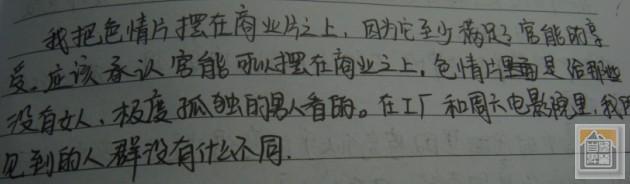 我把色情片摆在商业片之上,因为它至少满足了官能的享
受。应该承认官能可以摆在商业之上,色情片里面是给那些
没有女人、极度孤独的男人看的。在工厂和周六电影院里,我所
见到的人群没有什么不同.